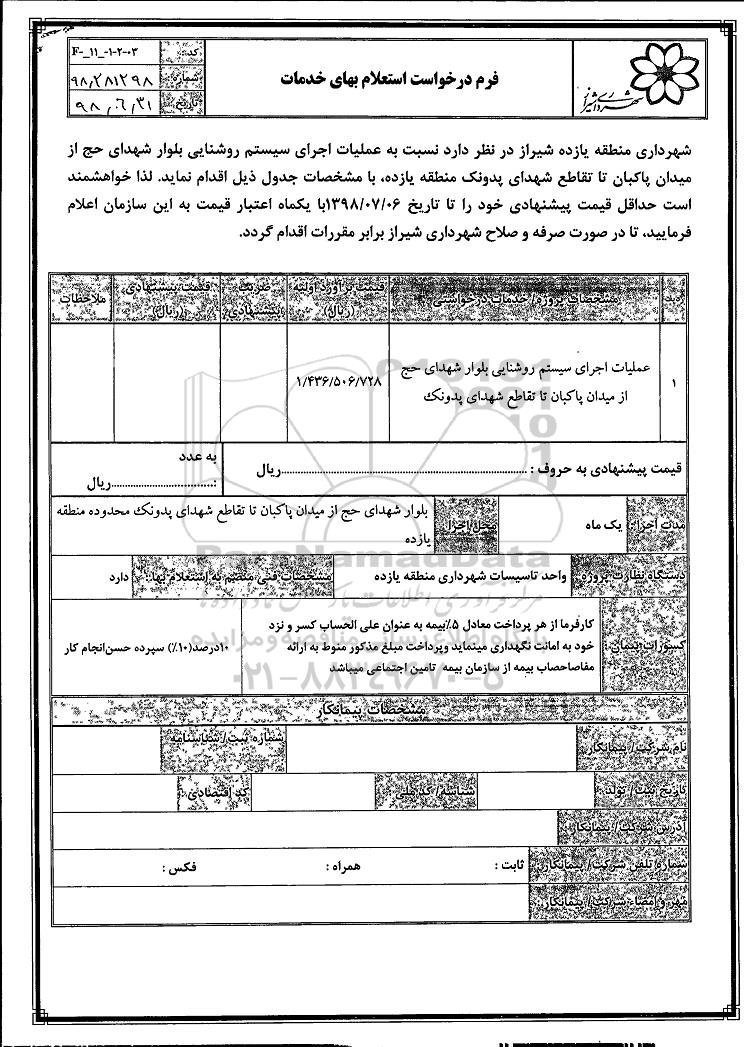 شهرداری شیراز
فرم درخواست استعلام بهای خدمات
کد: F-_11_-1-2-03
شماره: ۹۸/۲۸۱۲۹۸
تاریخ: ۹۸/۶/۳۱
شهرداری منطقه یازده شیراز در نظر دارد نسبت به عملیات اجرای سیستم روشنایی بلوار شهدای حج از
میدان پاکبان تا تقاطع شهدای پدونک منطقه یازده، با مشخصات جدول ذیل اقدام نماید. لذا خواهشمند
است حداقل قیمت پیشنهادی خود را تا تاریخ ۱۳۹۸/۰۷/۰۶با یکماه اعتبار قیمت به این سازمان اعلام
فرمایید، تا در صورت صرفه و صلاح شهرداری شیراز برابر مقررات اقدام گردد.
مشخصات پروژه/ خدمات درخواستی
قیمت برآورد اولیه
(ریال)
ضریب
پیشنهادی
قیمت پیشنهادی
(ریال)
ملاحظات
۱
عملیات اجرای سیستم روشنایی بلوار شهدای حج
از میدان پاکبان تا تقاطع شهدای پدونک
۱/۴۳۶/۵۰۶/۷۲۸
قیمت پیشنهادی به حروف : ..........ریال
به عدد
:..........ریال
مدت اجرا:
یک ماه
محل اجرا:
بلوار شهدای حج از میدان پاکبان تا تقاطع شهدای پدونک محدوده منطقه
یازده
دستگاه نظارت پروژه:
واحد تاسیسات شهرداری منطقه یازده
مشخصات فنی منضم به استعلام بها:
دارد
کسورات پیمان:
کارفرما از هر پرداخت معادل ۵٪بیمه به عنوان علی الحساب کسر و نزد
خود به امانت نگهداری مینماید وپرداخت مبلغ مذکور منوط به ارائه
مفاصاحصاب بیمه از سازمان بیمه تامین اجتماعی میباشد
۱۰درصد(۱۰٪) سپرده حسن‌انجام کار
مشخصات پیمانکار
نام شرکت/ پیمانکار:
شماره ثبت/ شناسنامه:
تاریخ ثبت/ تولد:
شناسه/ کد ملی:
کد اقتصادی:
آدرس شرکت/ پیمانکار:
شماره تلفن شرکت/ پیمانکار:
ثابت :
همراه :
فکس :
مهر و امضاء شرکت/ پیمانکار:
ParsNamadData
پایگاه اطلاع رسانی مناقصه و مزایده
۰۲۱-۸۸۳۴۹۶۷۰-۵